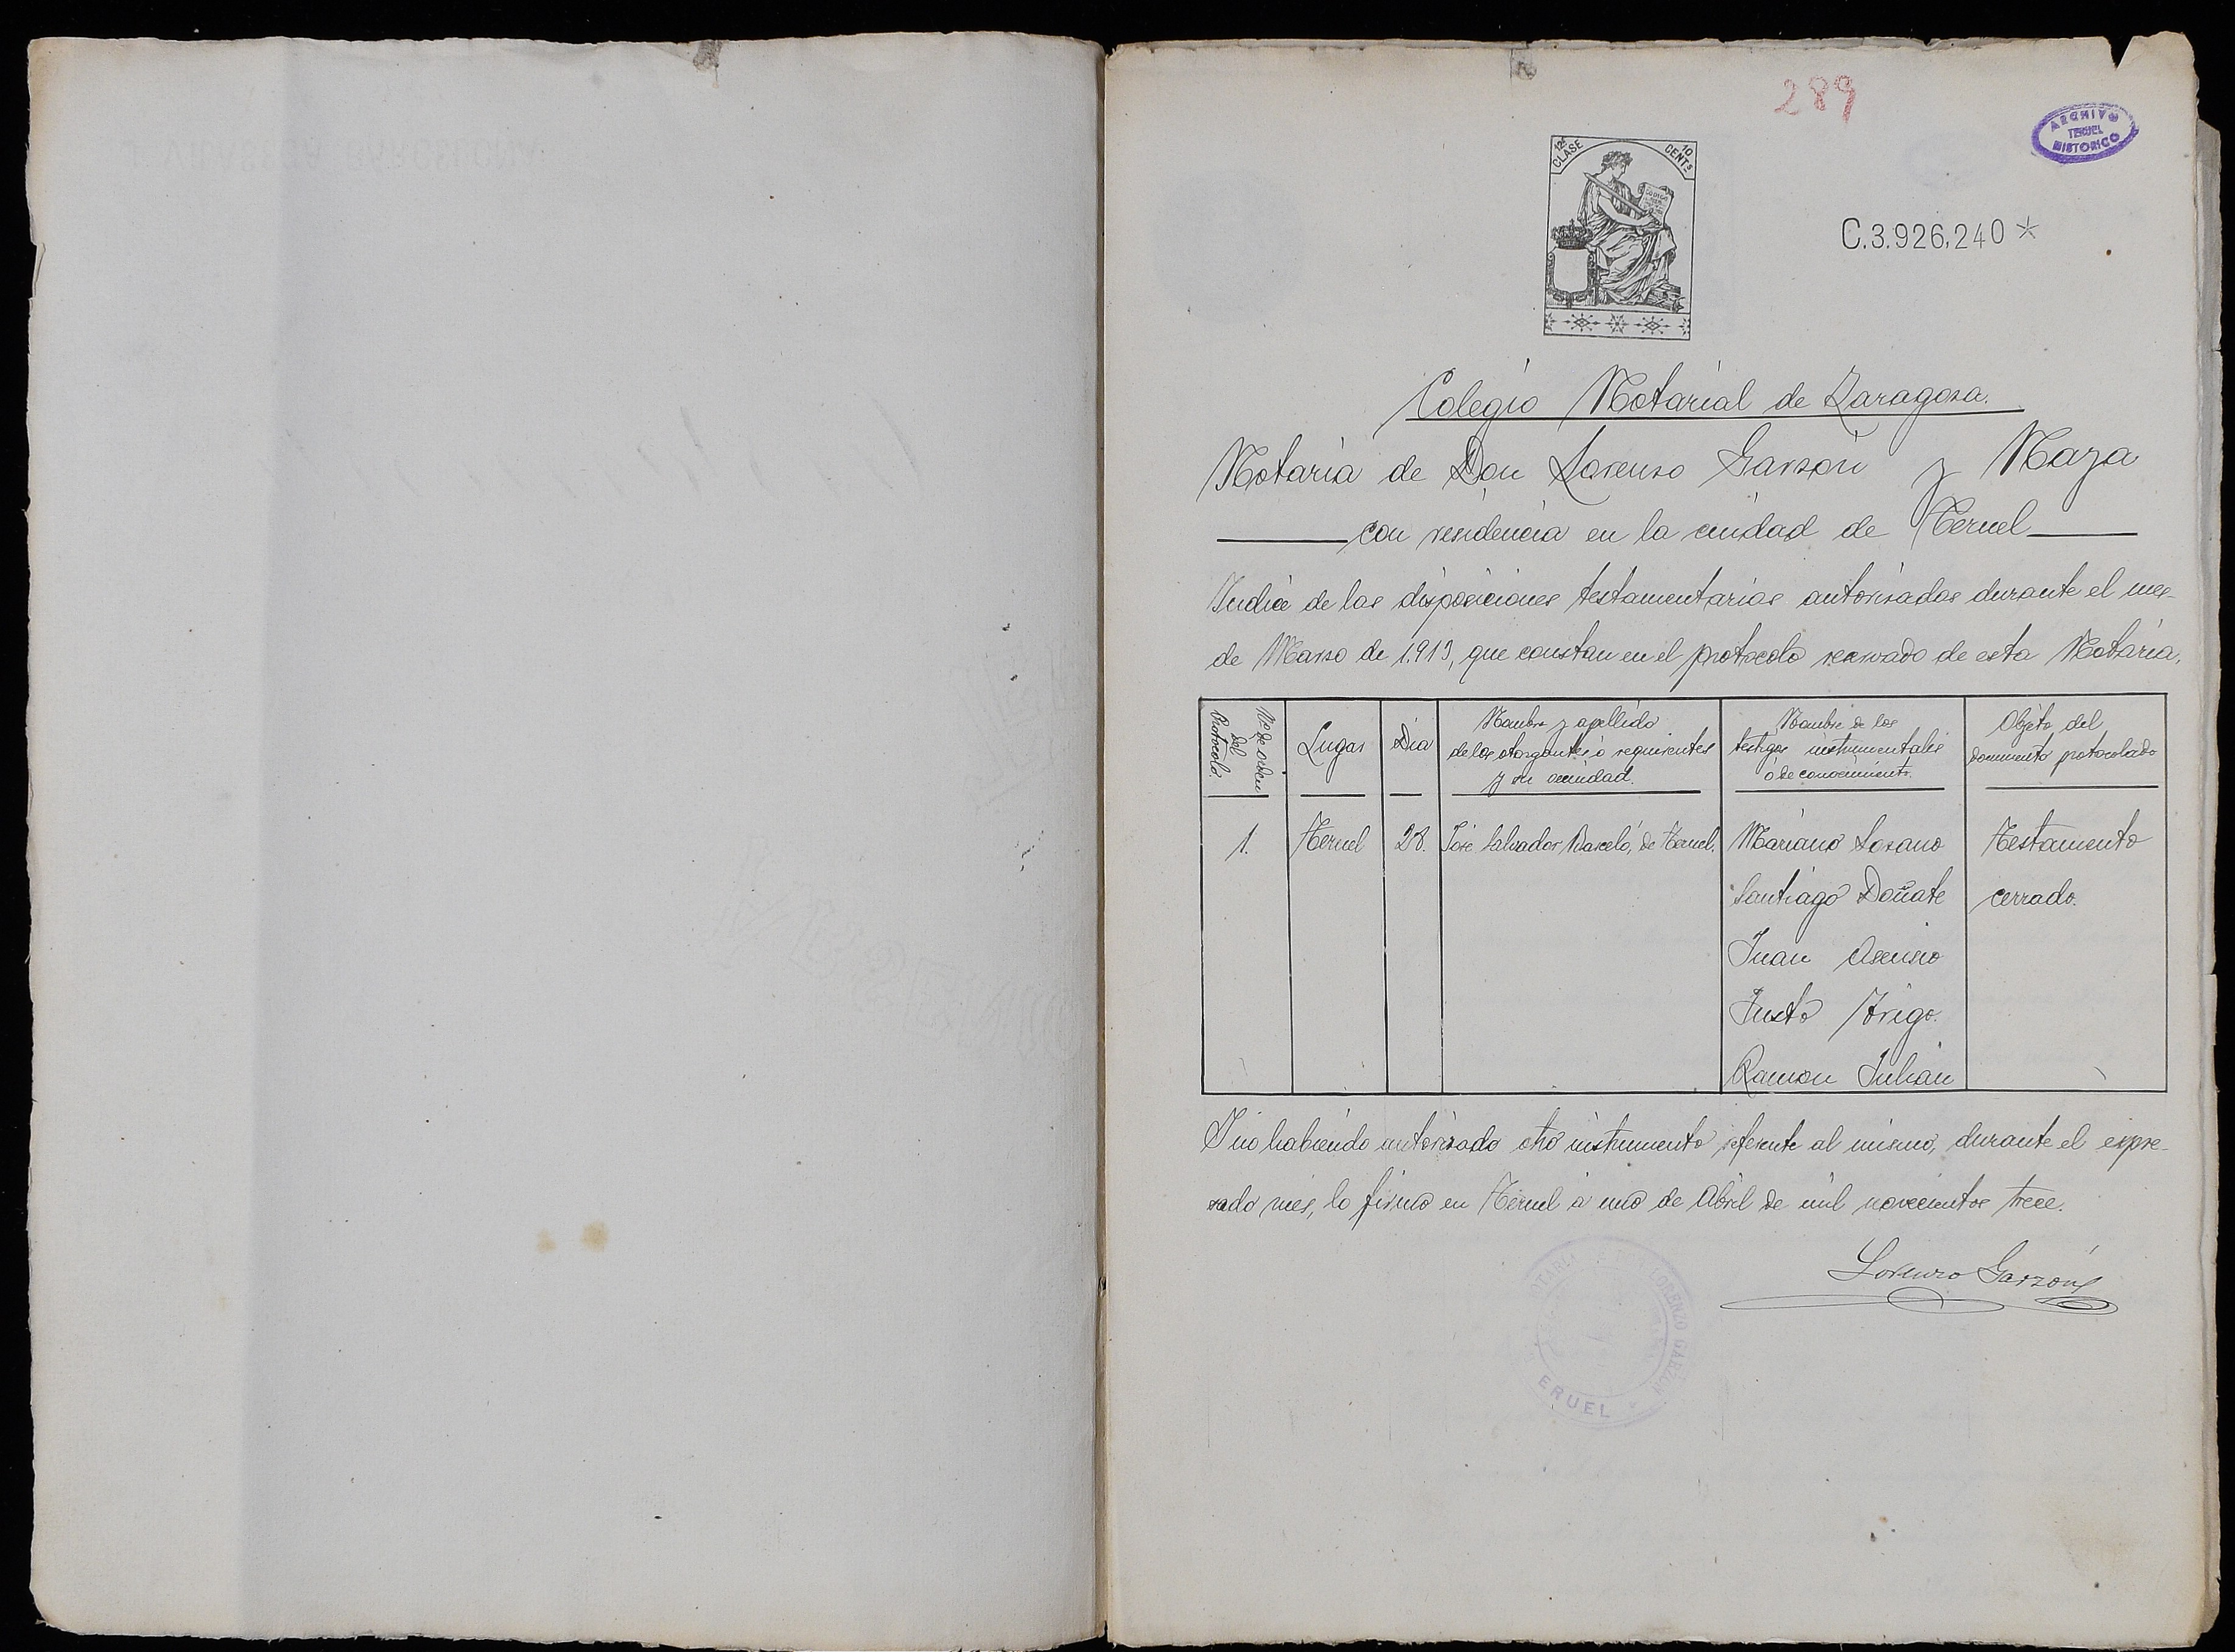 289
ARCHIVO
TERUEL
HISTORICO
12ª CLASE
10 CENTS
C.3.926,240 *
Colegio Notarial de Zaragoza.
Notaría de Don Lorenzo Garzón y Maza
con residencia en la ciudad de Teruel
Indice de las disposiciones testamentarias autorizadas durante el mes
de Marzo de 1.913, que constan en el protocolo reservado de esta Notaría.
Nº de orden
del
Protocolo.
Lugar
Dia
Nombre y apellido
de los otorgantes ó requirentes
y su vecindad.
Nombre de los
testigos instrumentales
ó de conocimiento.
Objeto del
documento protocolado
1.
Teruel
28.
José Salvador Barceló, de Teruel.
Mariano Lozano
Santiago Doñate
Juan Asensio
Justo Trigo.
Ramon Julian
Testamento
cerrado.
Y no habiendo autorizado otro instrumento referente al mismo, durante el expre-
sado mes, lo firmo en Teruel á uno de Abril de mil novecientos trece.
Lorenzo Garzón
LORENZO GARZON
ERUEL